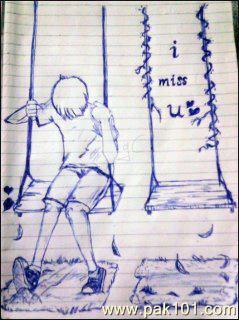 i
miss
u
www.pak101.com